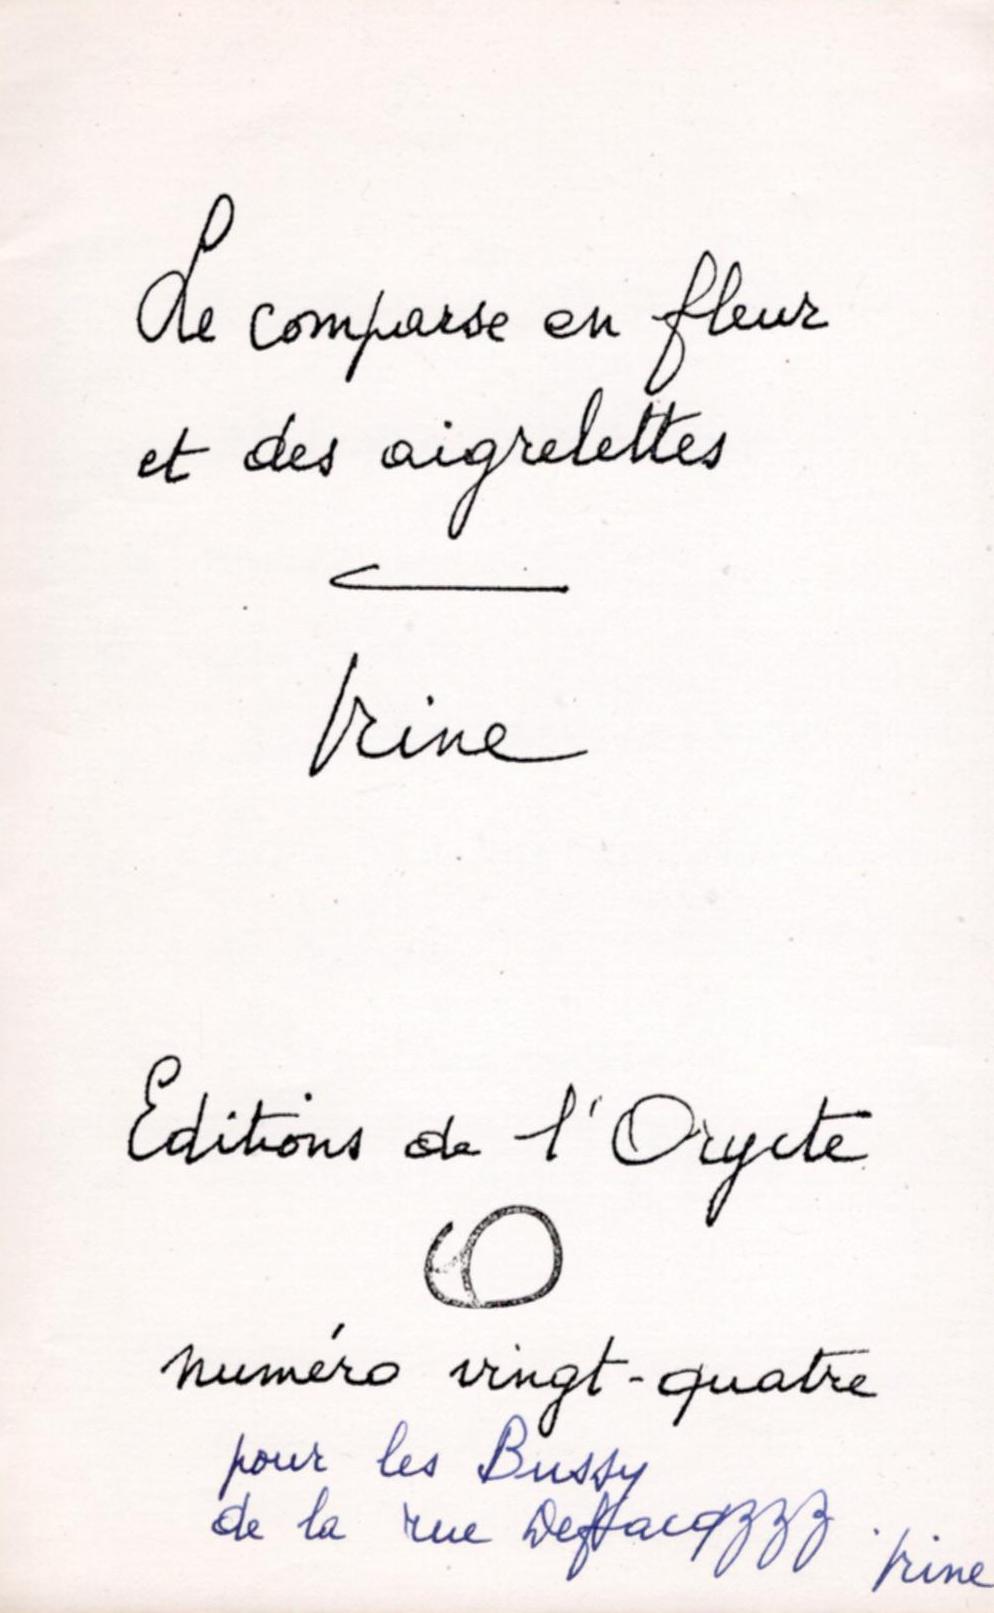 Le comparse en fleur
et des aigrelettes
Irine
Editions de l'Orycte
numéro vingt-quatre
pour les Bussy
de la rue Deffacqzzz
Irine